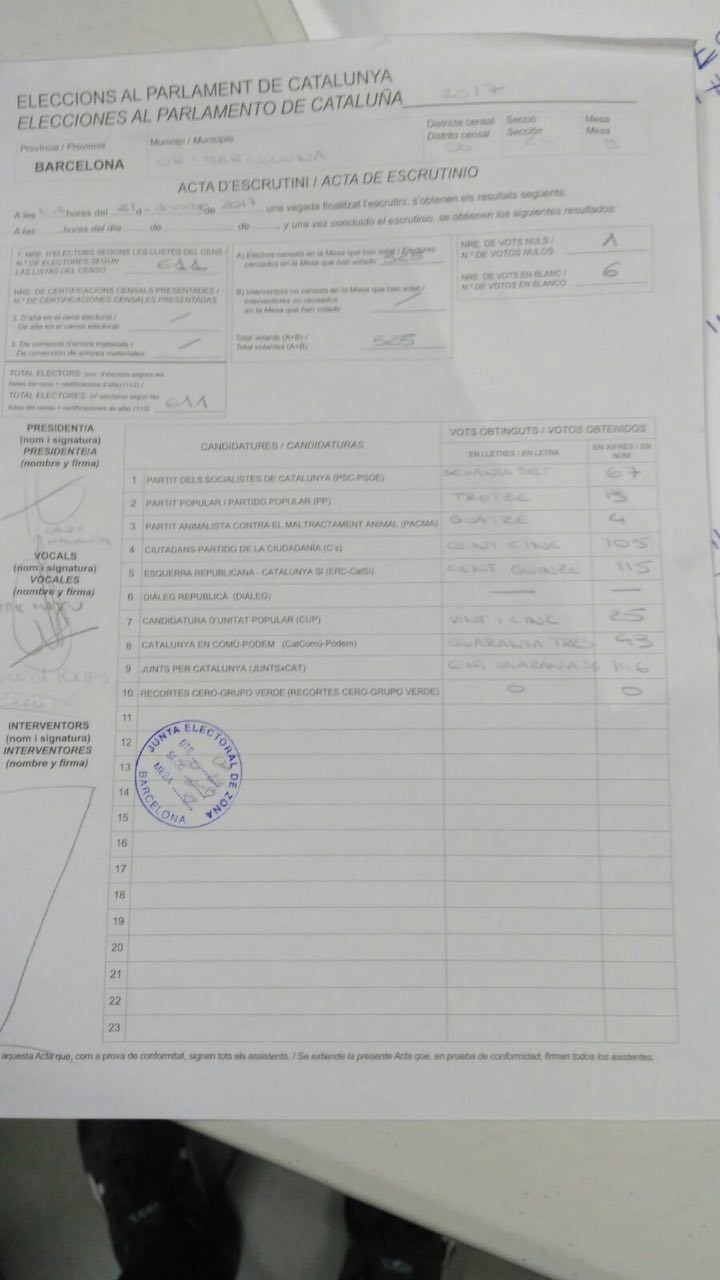 ELECCIONS AL PARLAMENT DE CATALUNYA
ELECCIONES AL PARLAMENTO DE CATALUÑA 2017
Província / Provincia
BARCELONA
Municipi / Municipio
BARCELONA
Districte censal Secció Mesa
Distrito censal Sección Mesa
B
ACTA D'ESCRUTINI / ACTA DE ESCRUTINIO
A les hores del 21 d de 2017, una vegada finalitzat l'escrutini, s'obtenen els resultats següents:
A las horas del día de de y una vez concluido el escrutinio, se obtienen los siguientes resultados:
1. NRE. D'ELECTORS SEGONS LES LLISTES DEL CENS /
N.º DE ELECTORES SEGÚN
LAS LISTAS DEL CENSO 611
NRE. DE CERTIFICACIONS CENSALS PRESENTADES /
N.º DE CERTIFICACIONES CENSALES PRESENTADAS
2. D'alta en el cens electoral /
De alta en el censo electoral
3. De correcció d'errors materials /
De corrección de errores materiales
TOTAL ELECTORS: (nre. d'electors segons les
llistes del cens + certificacions d'alta) (1+2) /
TOTAL ELECTORES: (nº electores según las
listas del censo + certificaciones de alta) (1+2) 611
A) Electors censats en la Mesa que han votat / Electores
censados en la Mesa que han votado 525
B) Interventors no censats en la Mesa que han votat /
Interventores no censados
en la Mesa que han votado
Total votants (A+B) /
Total votantes (A+B) 525
NRE. DE VOTS NULS /
N.º DE VOTOS NULOS 1
NRE. DE VOTS EN BLANC /
N.º DE VOTOS EN BLANCO 6
PRESIDENT/A
(nom i signatura)
PRESIDENTE/A
(nombre y firma)
VOCALS
(nom i signatura)
VOCALES
(nombre y firma)
INTERVENTORS
(nom i signatura)
INTERVENTORES
(nombre y firma)
CANDIDATURES / CANDIDATURAS
VOTS OBTINGUTS / VOTOS OBTENIDOS
EN LLETRES / EN LETRA
EN XIFRES / EN NÚM.
1 PARTIT DELS SOCIALISTES DE CATALUNYA (PSC-PSOE) SEIXANTA SET 67
2 PARTIT POPULAR / PARTIDO POPULAR (PP) TRETZE 13
3 PARTIT ANIMALISTA CONTRA EL MALTRACTAMENT ANIMAL (PACMA) QUATRE 4
4 CIUTADANS-PARTIDO DE LA CIUDADANÍA (C's) CENT CINC 105
5 ESQUERRA REPUBLICANA - CATALUNYA SÍ (ERC-CatSí) CENT QUINZE 115
6 DIÀLEG REPUBLICÀ (DIÀLEG) — —
7 CANDIDATURA D'UNITAT POPULAR (CUP) VINT I CINC 25
8 CATALUNYA EN COMÚ-PODEM (CatComú-Podem) QUARANTA TRES 43
9 JUNTS PER CATALUNYA (JUNTSxCAT) CENT QUARANTA 146
10 RECORTES CERO-GRUPO VERDE (RECORTES CERO-GRUPO VERDE) 0 0
11
12
13
14
15
16
17
18
19
20
21
22
23
JUNTA ELECTORAL DE ZONA
DTE.
SECC.
MESA
BARCELONA
aquesta Acta que, com a prova de conformitat, signen tots els assistents. / Se extiende la presente Acta que, en prueba de conformidad, firman todos los asistentes.